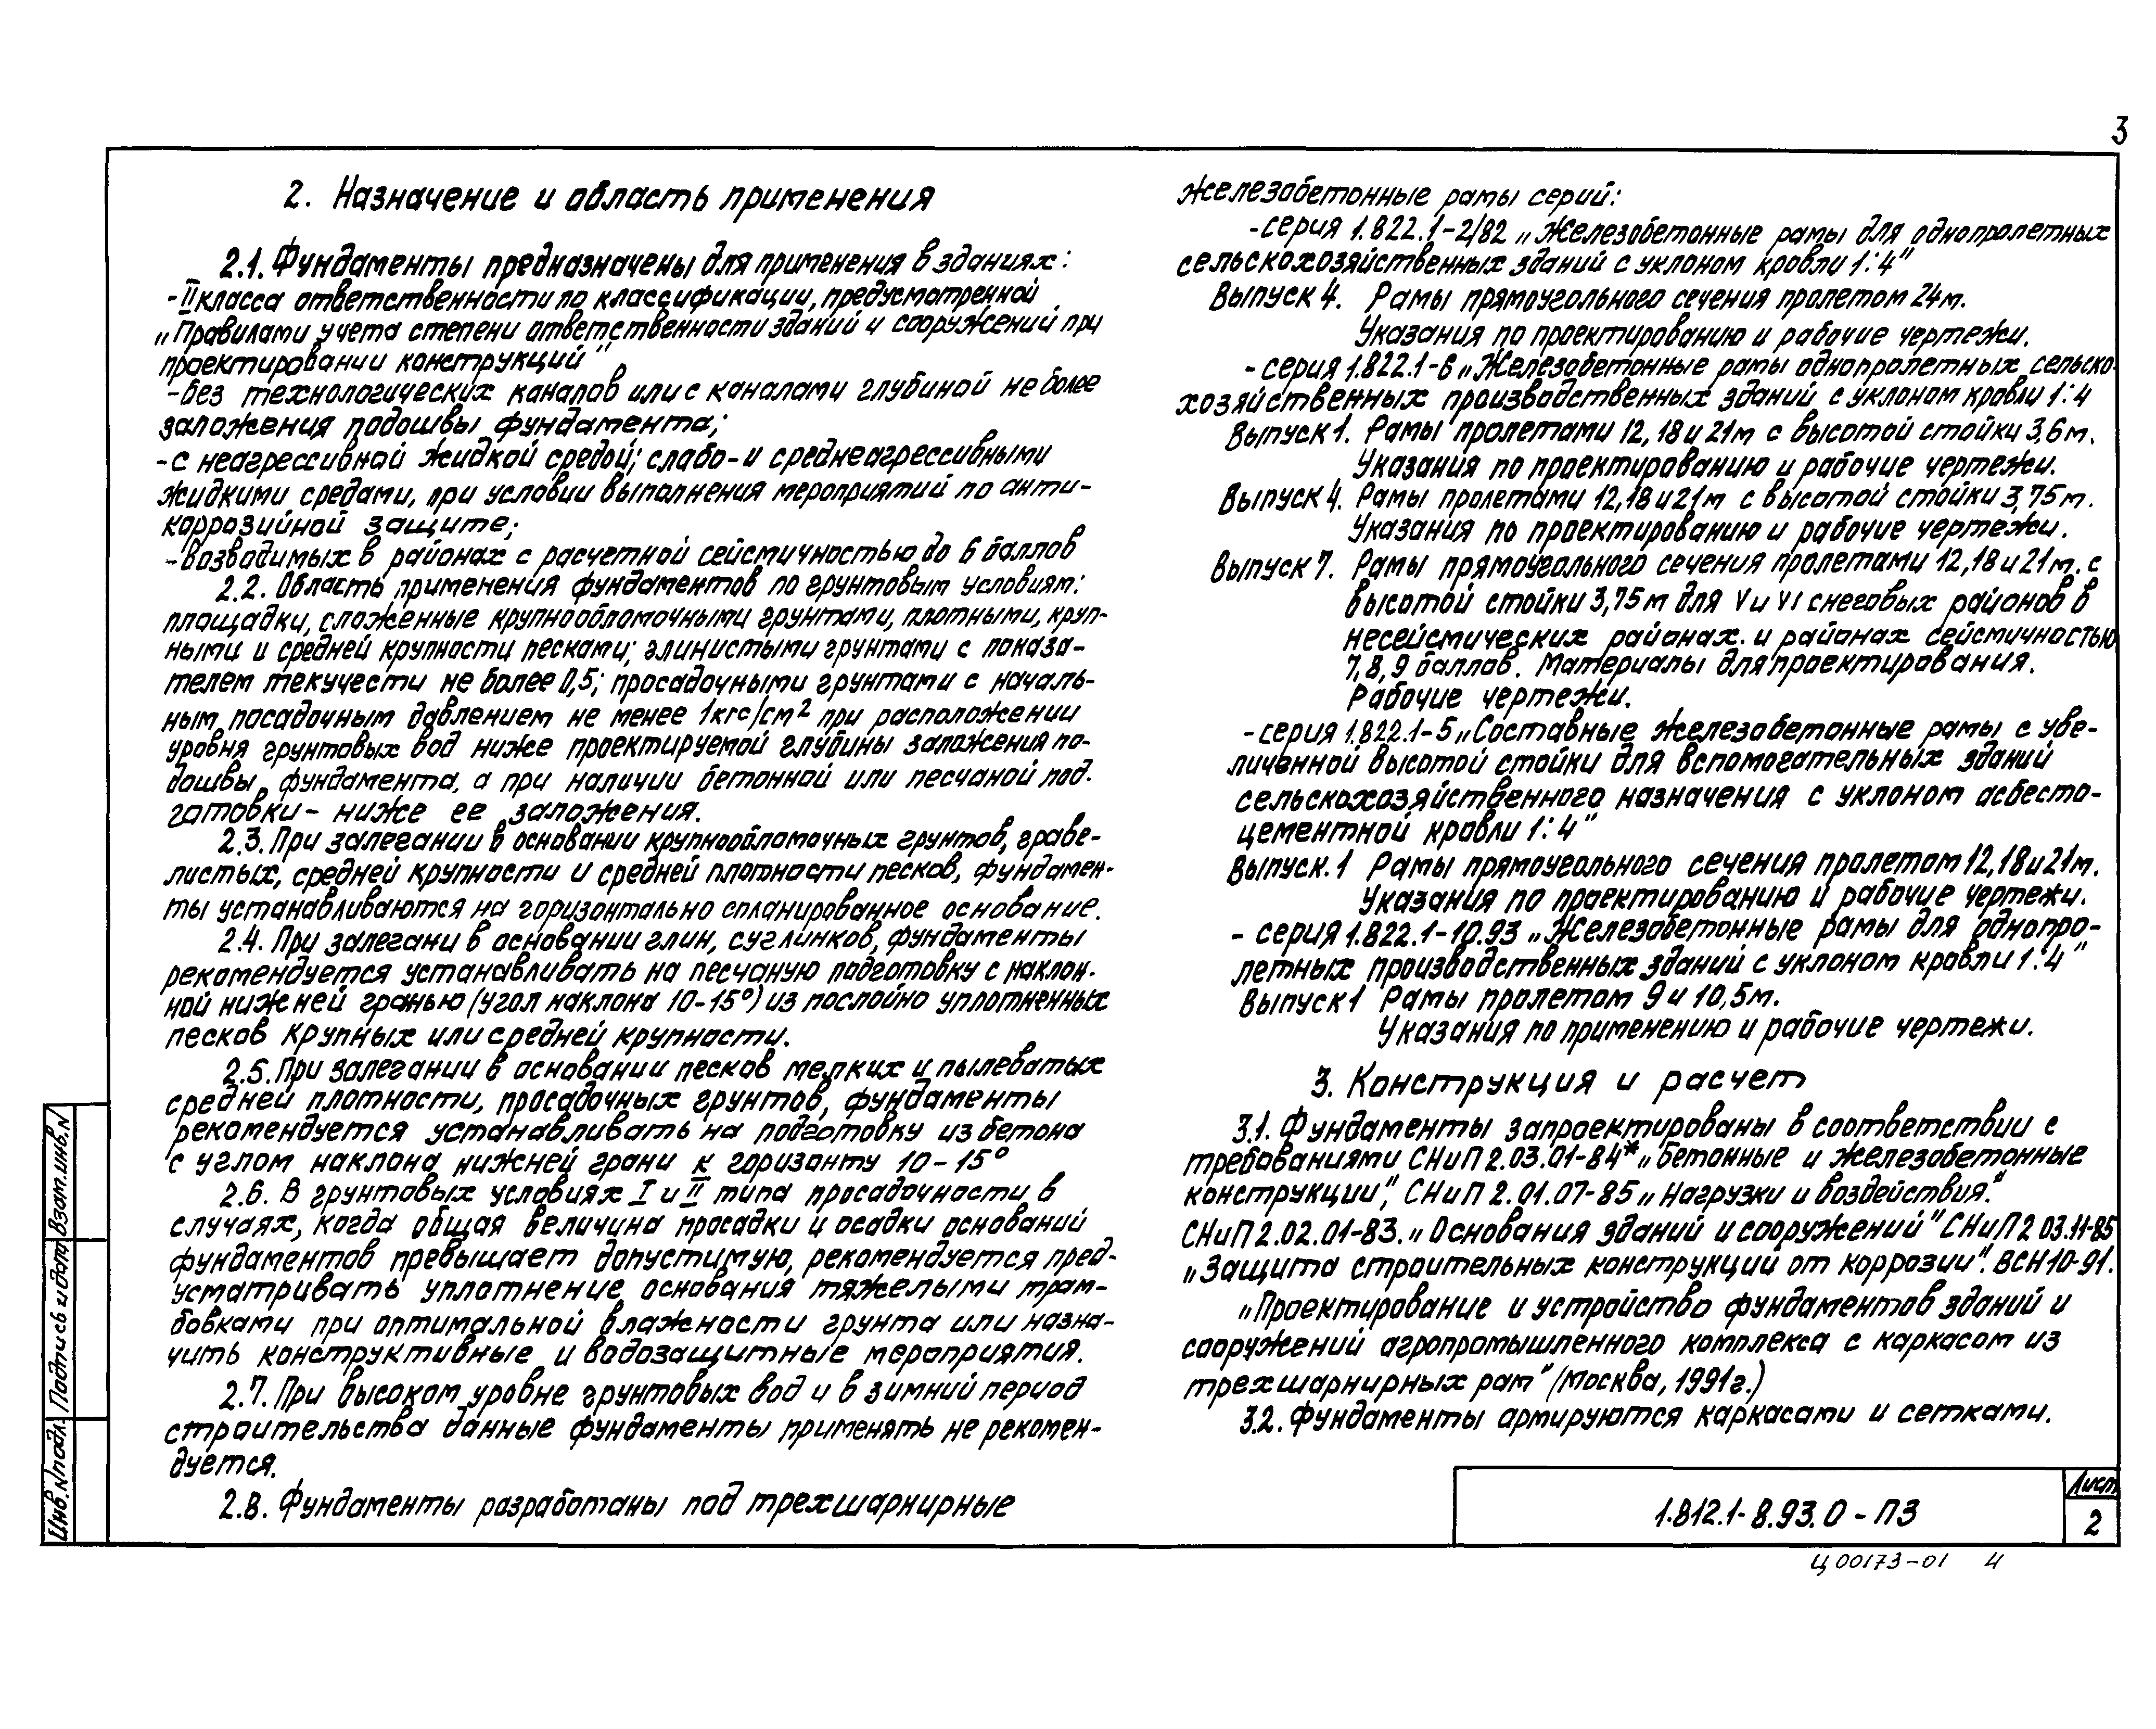 3
2. Назначение и область применения
2.1. Фундаменты предназначены для применения в зданиях:
- II класса ответственности по классификации, предусмотренной
„Правилами учета степени ответственности зданий и сооружений при
проектировании конструкций"
- без технологических каналов или с каналами глубиной не более
заложения подошвы фундамента;
- с неагрессивной жидкой средой; слабо- и среднеагрессивными
жидкими средами, при условии выполнения мероприятий по анти-
коррозийной защите;
- возводимых в районах с расчетной сейсмичностью до 6 баллов
2.2. Область применения фундаментов по грунтовым условиям:
площадки, сложенные крупнообломочными грунтами, плотными, круп-
ными и средней крупности песками; глинистыми грунтами с показа-
телем текучести не более 0,5; просадочными грунтами с началь-
ным посадочным давлением не менее 1кгс/см² при расположении
уровня грунтовых вод ниже проектируемой глубины заложения по-
дошвы фундамента, а при наличии бетонной или песчаной под-
готовки - ниже ее заложения.
2.3. При залегании в основании крупнообломочных грунтов, граве-
листых, средней крупности и средней плотности песков, фундамен-
ты устанавливаются на горизонтально спланированное основание.
2.4. При залегани в основании глин, суглинков, фундаменты
рекомендуется устанавливать на песчаную подготовку с наклон-
ной нижней гранью (угол наклона 10-15°) из послойно уплотненных
песков крупных или средней крупности.
2.5. При залегании в основании песков мелких и пылеватых
средней плотности, просадочных грунтов, фундаменты
рекомендуется устанавливать на подготовку из бетона
с углом наклона нижней грани к горизонту 10-15°
2.6. В грунтовых условиях I и II типа просадочности в
случаях, когда общая величина просадки и осадки оснований
фундаментов превышает допустимую, рекомендуется пред-
усматривать уплотнение основания тяжелыми трам-
бовками при оптимальной влажности грунта или назна-
чить конструктивные и водозащитные мероприятия.
2.7. При высоком уровне грунтовых вод и в зимний период
строительства данные фундаменты применять не рекомен-
дуется.
2.8. Фундаменты разработаны под трехшарнирные
железобетонные рамы серий:
- серия 1.822.1-2/82 „Железобетонные рамы для однопролетных
сельскохозяйственных зданий с уклоном кровли 1:4"
Выпуск 4. Рамы прямоугольного сечения пролетом 24м.
Указания по проектированию и рабочие чертежи.
- серия 1.822.1-6 „Железобетонные рамы однопролетных сельско-
хозяйственных производственных зданий с уклоном кровли 1:4
Выпуск 1. Рамы пролетами 12, 18 и 21м с высотой стойки 3,6м.
Указания по проектированию и рабочие чертежи.
Выпуск 4. Рамы пролетами 12,18 и 21м с высотой стойки 3,75м.
Указания по проектированию и рабочие чертежи.
Выпуск 7. Рамы прямоугольного сечения пролетами 12,18 и 21м. с
высотой стойки 3,75м для V и VI снеговых районов в
несейсмических районах. и районах сейсмичностью
7,8,9 баллов. Материалы для проектирования.
Рабочие чертежи.
- серия 1.822.1-5 „Составные железобетонные рамы с уве-
личенной высотой стойки для вспомогательных зданий
сельскохозяйственного назначения с уклоном асбесто-
цементной кровли 1:4"
Выпуск.1 Рамы прямоугольного сечения пролетом 12,18 и 21м.
Указания по проектированию и рабочие чертежи.
- серия 1.822.1-10.93 „Железобетонные рамы для однопро-
летных производственных зданий с уклоном кровли 1:4"
Выпуск 1 Рамы пролетом 9 и 10,5м.
Указания по применению и рабочие чертежи.
3. Конструкция и расчет
3.1. Фундаменты запроектированы в соответствии с
требованиями СНиП 2.03.01-84* „Бетонные и железобетонные
конструкции", СНиП 2.01.07-85 „Нагрузки и воздействия."
СНиП 2.02.01-83. „Основания зданий и сооружений" СНиП 2 03.11-85
„Защита строительных конструкций от коррозии". ВСН 10-91.
„Проектирование и устройство фундаментов зданий и
сооружений агропромышленного комплекса с каркасом из
трехшарнирных рам" (Москва, 1991г.)
3.2. Фундаменты армируются каркасами и сетками.
Взам.инв.N
Подпись и дата
Инв.Nподл.
1.812.1-8.93.0-ПЗ
Лист
2
Ц00173-01 4